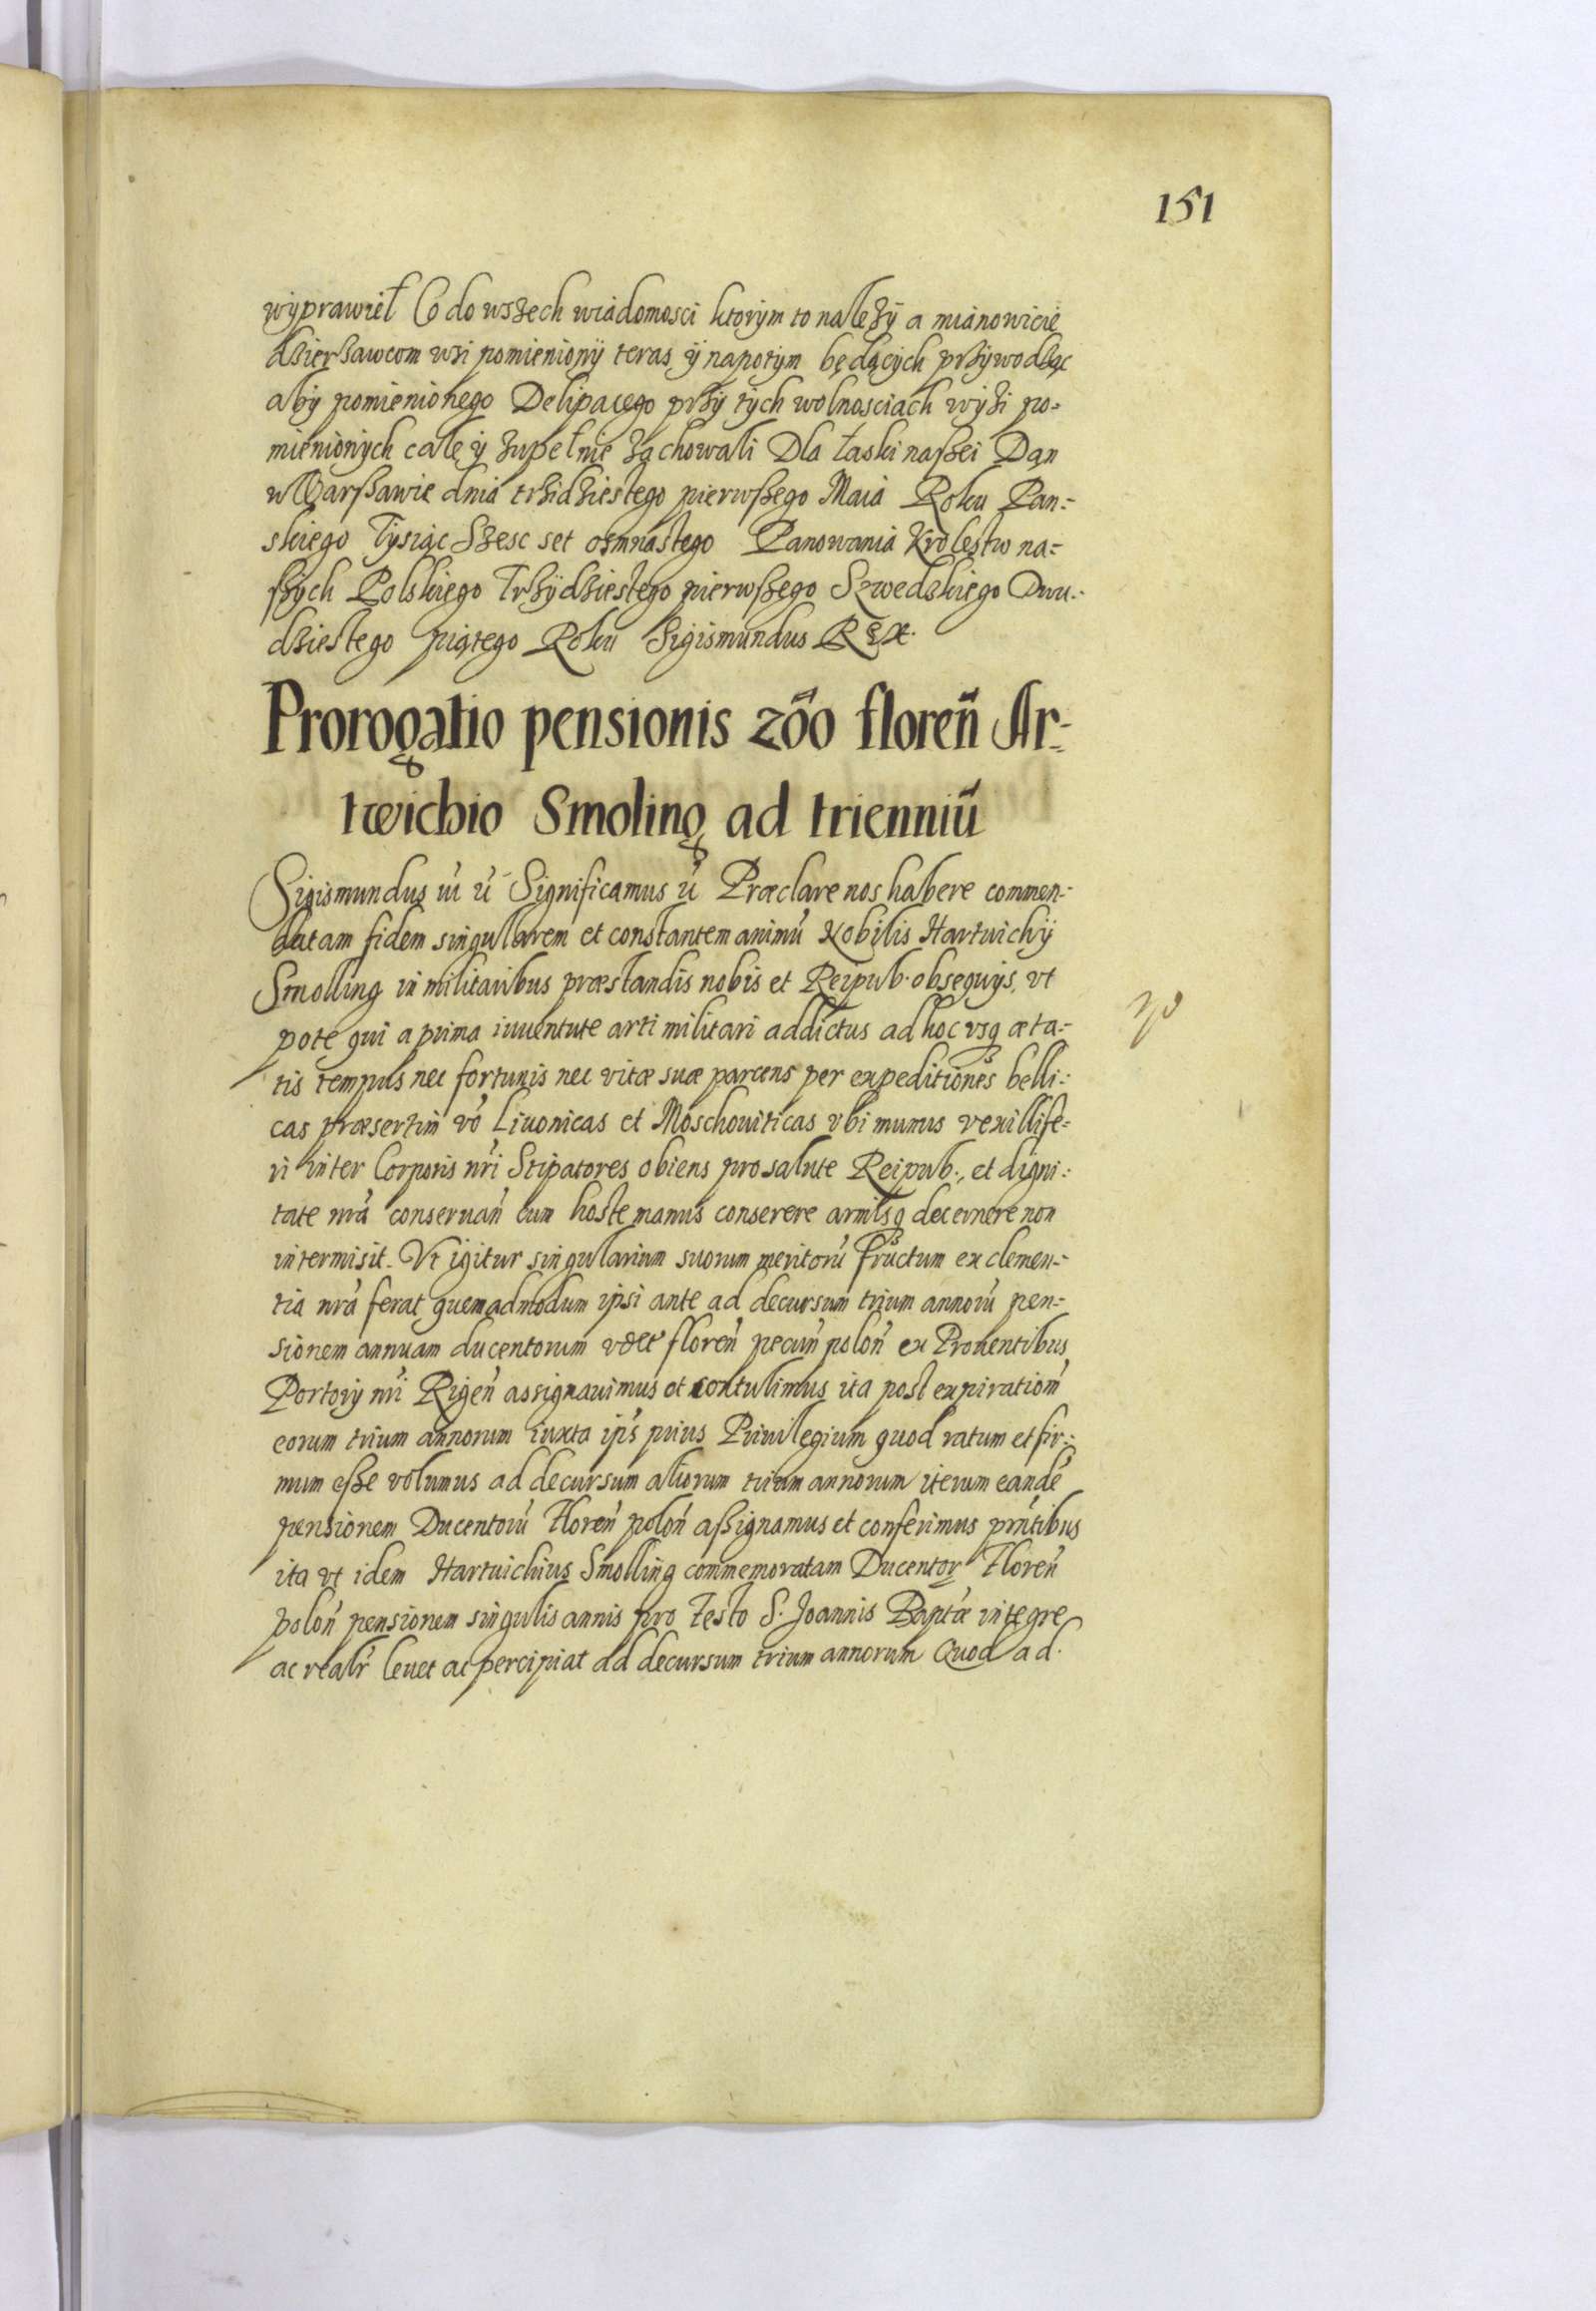 151
wyprawieł Co do wszech wiadomosci ktorym to należy a mianowicie
dzierzawcom wsi pomieniony teras y napotym będących przywodząc
aby pomienionego Delipacego przy tych wolnosciach wyżi po=
mienionych cale y zupełnie zachowali Dla łaski naszei Dan
w Warszawie dnia trzidziestego pierwszego Maia Roku Pan=
skiego Tysiąc Szesc set osmnastego Panowania Krolestw na=
szych Polskiego Trzydziestego pierwszego Szwedzkiego Dwu=
dziestego piątego Roku Sigismundus Rex.
Prorogatio pensionis 200 floreñ Ar=
twichio Smoling ad trienniũ
Sigismundus iii ũ Significamus ũ Præclare nos habere commen=
datam fidem singularem et constantem animũ Nobilis Hartuichÿ
Smolling in militaribus præstandis nobis et Reipub. obsequÿs, vt
pote qui a prima iuuentute arti militari addictus ad hoc vsq æta=
tis tempus nec fortunis nec vitæ suæ parcens per expeditiones belli=
cas præsertim võ Liuonicas et Moschouiticas vbi munus vexillife=
ri inter Corporis nr̃i Stipatores obiens pro salute Reipub., et digni=
tate nr̃a conseruañ cum hoste manus conserere armisq decernere non
intermisit. Vt igitur singularium suorum meritorũ fructum ex clemen=
tia nr̃a ferat quemadmodum ipsi ante ad decursum trium annorũ pen=
sionem annuam ducentorum vdet floreñ pecuñ poloñ ex Prouentibus
Portorÿ nr̃i Rigeñ assignauimus et contulimus ita post expirationẽ
eorum trium annorum iuxta ips̃ prius Priuilegium quod ratum et fir=
mum esse volumus ad decursum aliorum trium annorum iterum eandẽ
pensionem Ducentorũ Floreñ poloñ assignamus et conferimus prñtibus
ita vt idem Hartuichius Smolling commemoratam Ducentor Floreñ
poloñ pensionem singulis annis pro festo S. Joannis Baptæ integre
ac realr̃ leuet ac percipiat ad decursum trium annorum Quod ad